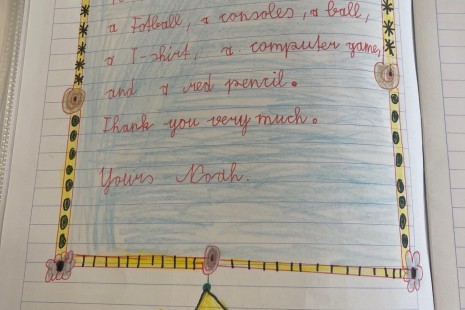 a Fotball, a consoles, a ball,
a T-shirt, a computer game,
and a red pencil.
Thank you very much.
Yours Noah.